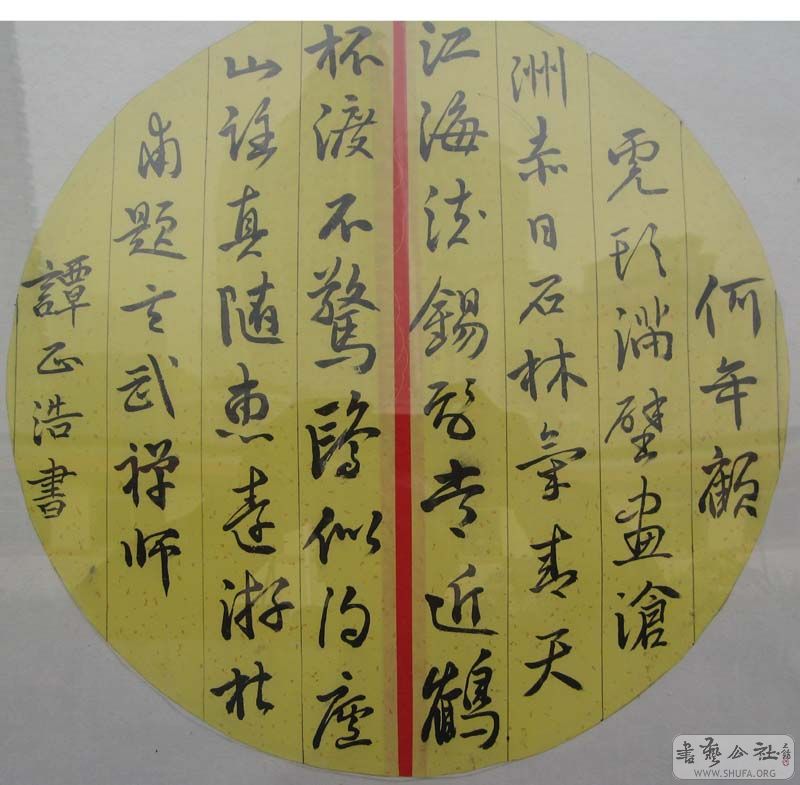 何年顧
虎頭滿壁畫滄
洲赤日石林氣青天
江海流錫飛常近鶴
杯渡不驚鷗似得廬
山路真隨惠遠游杜
甫題玄武禪師
譚正浩書
書藝公社
WWW.SHUFA.ORG